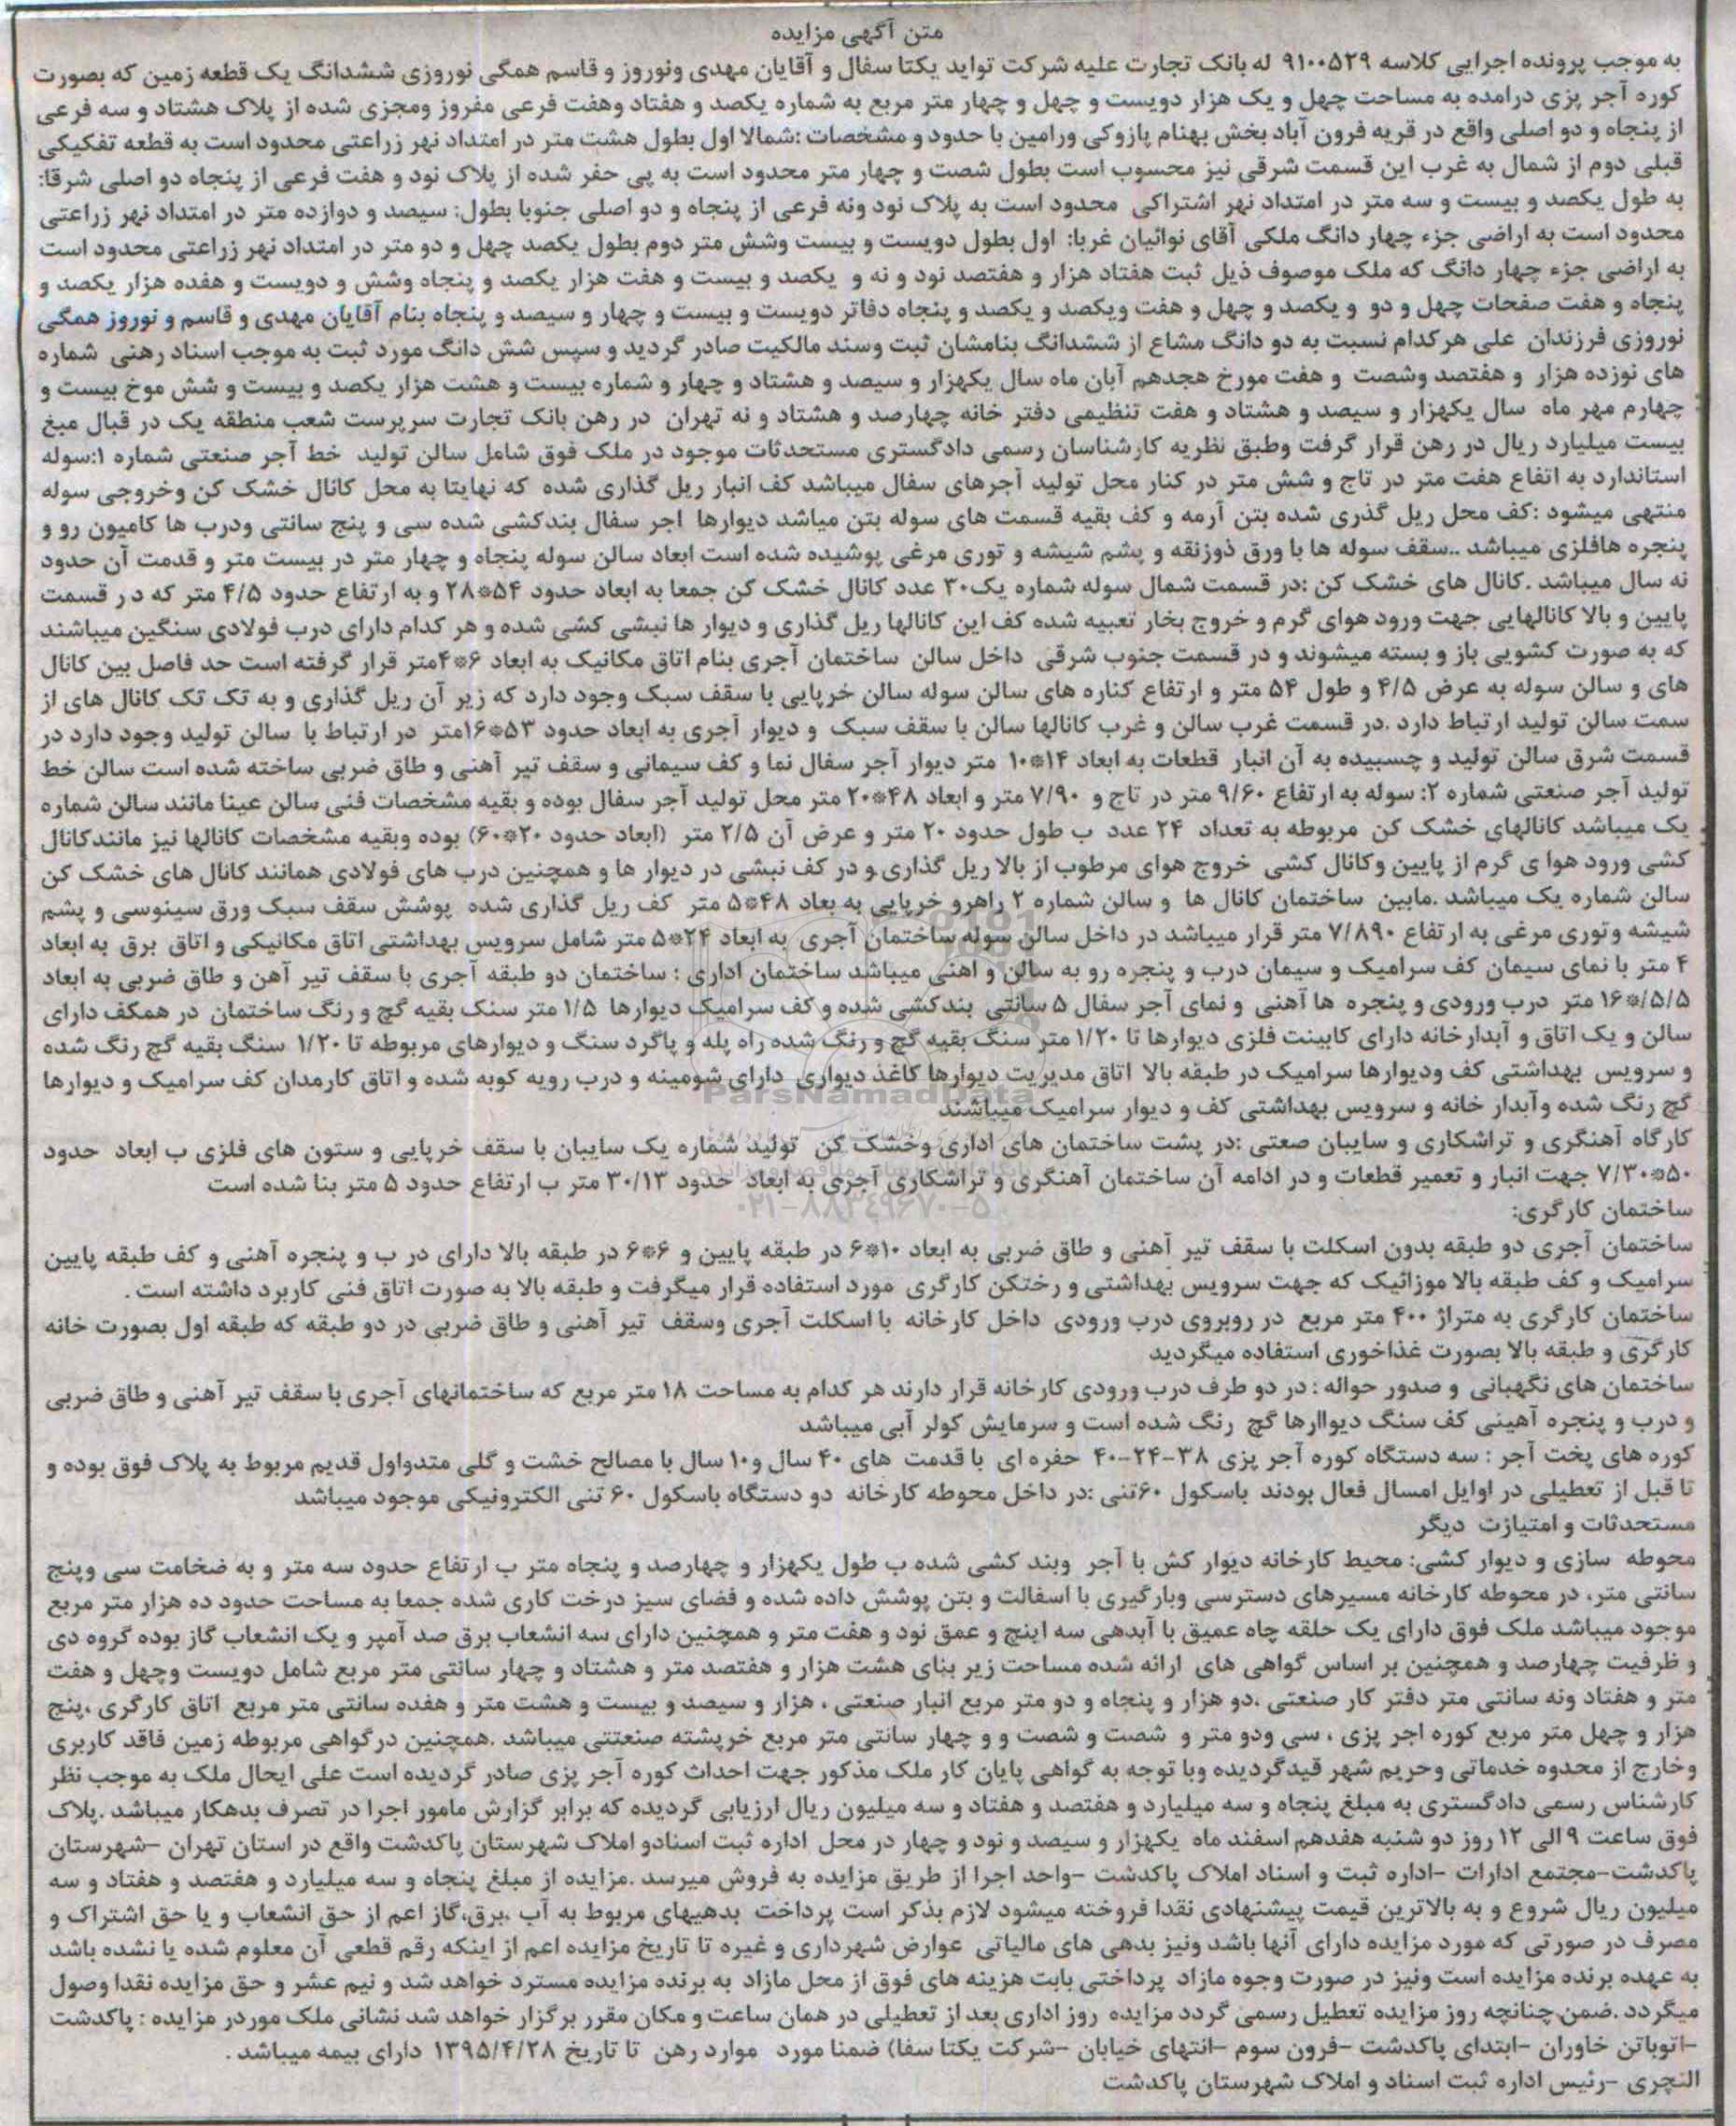 متن آگهی مزایده
به موجب پرونده اجرایی کلاسه ۹۱۰۰۵۲۹ له بانک تجارت علیه شرکت تولید یکتا سفال و آقایان مهدی ونوروز و قاسم همگی نوروزی ششدانگ یک قطعه زمین که بصورت
کوره آجر پزی درامده به مساحت چهل و یک هزار دویست و چهل و چهار متر مربع به شماره یکصد و هفتاد وهفت فرعی مفروز ومجزی شده از پلاک هشتاد و سه فرعی
از پنجاه و دو اصلی واقع در قریه فرون آباد بخش بهنام پازوکی ورامین با حدود و مشخصات :شمالا اول بطول هشت متر در امتداد نهر زراعتی محدود است به قطعه تفکیکی
قبلی دوم از شمال به غرب این قسمت شرقی نیز محسوب است بطول شصت و چهار متر محدود است به پی حفر شده از پلاک نود و هفت فرعی از پنجاه دو اصلی شرقا:
به طول یکصد و بیست و سه متر در امتداد نهر اشتراکی محدود است به پلاک نود ونه فرعی از پنجاه و دو اصلی جنوبا بطول: سیصد و دوازده متر در امتداد نهر زراعتی
محدود است به اراضی جزء چهار دانگ ملکی آقای نوائیان غربا: اول بطول دویست و بیست وشش متر دوم بطول یکصد چهل و دو متر در امتداد نهر زراعتی محدود است
به اراضی جزء چهار دانگ که ملک موصوف ذیل ثبت هفتاد هزار و هفتصد نود و نه و یکصد و بیست و هفت هزار یکصد و پنجاه وشش و دویست و هفده هزار یکصد و
پنجاه و هفت صفحات چهل و دو و یکصد و چهل و هفت ویکصد و یکصد و پنجاه دفاتر دویست و بیست و چهار و سیصد و پنجاه بنام آقایان مهدی و قاسم و نوروز همگی
نوروزی فرزندان علی هرکدام نسبت به دو دانگ مشاع از ششدانگ بنامشان ثبت وسند مالکیت صادر گردید و سپس شش دانگ مورد ثبت به موجب اسناد رهنی شماره
های نوزده هزار و هفتصد وشصت و هفت مورخ هجدهم آبان ماه سال یکهزار و سیصد و هشتاد و چهار و شماره بیست و هشت هزار یکصد و بیست و شش موخ بیست و
چهارم مهر ماه سال یکهزار و سیصد و هشتاد و هفت تنظیمی دفتر خانه چهارصد و هشتاد و نه تهران در رهن بانک تجارت سرپرست شعب منطقه یک در قبال مبغ
بیست میلیارد ریال در رهن قرار گرفت وطبق نظریه کارشناسان رسمی دادگستری مستحدثات موجود در ملک فوق شامل سالن تولید خط آجر صنعتی شماره ۱:سوله
استاندارد به اتفاع هفت متر در تاج و شش متر در کنار محل تولید آجرهای سفال میباشد کف انبار ریل گذاری شده که نهایتا به محل کانال خشک کن وخروجی سوله
منتهی میشود :کف محل ریل گذری شده بتن آرمه و کف بقیه قسمت های سوله بتن میاشد دیوارها اجر سفال بندکشی شده سی و پنج سانتی ودرب ها کامیون رو و
پنجره هافلزی میباشد ..سقف سوله ها با ورق ذوزنقه و پشم شیشه و توری مرغی پوشیده شده است ابعاد سالن سوله پنجاه و چهار متر در بیست متر و قدمت آن حدود
نه سال میباشد .کانال های خشک کن :در قسمت شمال سوله شماره یک۳۰ عدد کانال خشک کن جمعا به ابعاد حدود ۵۴*۲۸ و به ارتفاع حدود ۴/۵ متر که در قسمت
پایین و بالا کانالهایی جهت ورود هوای گرم و خروج بخار تعبیه شده کف این کانالها ریل گذاری و دیوار ها نبشی کشی شده و هر کدام دارای درب فولادی سنگین میباشند
که به صورت کشویی باز و بسته میشوند و در قسمت جنوب شرقی داخل سالن ساختمان آجری بنام اتاق مکانیک به ابعاد ۶*۴متر قرار گرفته است حد فاصل بین کانال
های و سالن سوله به عرض ۴/۵ و طول ۵۴ متر و ارتفاع کناره های سالن سوله سالن خرپایی با سقف سبک وجود دارد که زیر آن ریل گذاری و به تک تک کانال های از
سمت سالن تولید ارتباط دارد .در قسمت غرب سالن و غرب کانالها سالن با سقف سبک و دیوار آجری به ابعاد حدود ۵۳*۱۶متر در ارتباط با سالن تولید وجود دارد در
قسمت شرق سالن تولید و چسبیده به آن انبار قطعات به ابعاد ۱۴*۱۰ متر دیوار آجر سفال نما و کف سیمانی و سقف تیر آهنی و طاق ضربی ساخته شده است سالن خط
تولید آجر صنعتی شماره ۲: سوله به ارتفاع ۹/۶۰ متر در تاج و ۷/۹۰ متر و ابعاد ۴۸*۲۰ متر محل تولید آجر سفال بوده و بقیه مشخصات فنی سالن عینا مانند سالن شماره
یک میباشد کانالهای خشک کن مربوطه به تعداد ۲۴ عدد ب طول حدود ۲۰ متر و عرض آن ۲/۵ متر (ابعاد حدود ۲۰*۶۰) بوده وبقیه مشخصات کانالها نیز مانندکانال
کشی ورود هوا ی گرم از پایین وکانال کشی خروج هوای مرطوب از بالا ریل گذاری.و در کف نبشی در دیوار ها و همچنین درب های فولادی همانند کانال های خشک کن
سالن شماره یک میباشد .مابین ساختمان کانال ها و سالن شماره ۲ راهرو خرپایی به بعاد ۴۸*۵ متر کف ریل گذاری شده پوشش سقف سبک ورق سینوسی و پشم
شیشه وتوری مرغی به ارتفاع ۷/۸۹۰ متر قرار میباشد در داخل سالن سوله ساختمان آجری به ابعاد ۲۴*۵ متر شامل سرویس بهداشتی اتاق مکانیکی و اتاق برق به ابعاد
۴ متر با نمای سیمان کف سرامیک و سیمان درب و پنجره رو به سالن و اهنی میباشد ساختمان اداری : ساختمان دو طبقه آجری با سقف تیر آهن و طاق ضربی به ابعاد
۵/۵/*۱۶ متر درب ورودی و پنجره ها آهنی و نمای آجر سفال ۵ سانتی بندکشی شده و کف سرامیک دیوارها ۱/۵ متر سنک بقیه گچ و رنگ ساختمان در همکف دارای
سالن و یک اتاق و آبدارخانه دارای کابینت فلزی دیوارها تا ۱/۲۰ متر سنگ بقیه گچ و رنگ شده راه پله و پاگرد سنگ و دیوارهای مربوطه تا ۱/۲۰ سنگ بقیه گچ رنگ شده
و سرویس بهداشتی کف ودیوارها سرامیک در طبقه بالا اتاق مدیریت دیوارها کاغذ دیواری دارای شومینه و درب رویه کوبه شده و اتاق کارمدان کف سرامیک و دیوارها
گچ رنگ شده وآبدار خانه و سرویس بهداشتی کف و دیوار سرامیک میباشند
کارگاه آهنگری و تراشکاری و سایبان صعتی :در پشت ساختمان های اداری وخشک کن تولید شماره یک سایبان با سقف خرپایی و ستون های فلزی ب ابعاد حدود
۵۰*۷/۳۰ جهت انبار و تعمیر قطعات و در ادامه آن ساختمان آهنگری و تراشکاری آجری به ابعاد حدود ۳۰/۱۳ متر ب ارتفاع حدود ۵ متر بنا شده است
ساختمان کارگری:
ساختمان آجری دو طبقه بدون اسکلت با سقف تیر آهنی و طاق ضربی به ابعاد ۱۰*۶ در طبقه پایین و ۶*۶ در طبقه بالا دارای در ب و پنجره آهنی و کف طبقه پایین
سرامیک و کف طبقه بالا موزائیک که جهت سرویس بهداشتی و رختکن کارگری مورد استفاده قرار میگرفت و طبقه بالا به صورت اتاق فنی کاربرد داشته است .
ساختمان کارگری به متراژ ۴۰۰ متر مربع در روبروی درب ورودی داخل کارخانه با اسکلت آجری وسقف تیر آهنی و طاق ضربی در دو طبقه که طبقه اول بصورت خانه
کارگری و طبقه بالا بصورت غذاخوری استفاده میگردید
ساختمان های نگهبانی و صدور حواله : در دو طرف درب ورودی کارخانه قرار دارند هر کدام به مساحت ۱۸ متر مربع که ساختمانهای آجری با سقف تیر آهنی و طاق ضربی
و درب و پنجره آهینی کف سنگ دیواارها گچ رنگ شده است و سرمایش کولر آبی میباشد
کوره های پخت آجر : سه دستگاه کوره آجر پزی ۳۸-۲۴-۴۰ حفره ای با قدمت های ۴۰ سال و۱۰ سال با مصالح خشت و گلی متدواول قدیم مربوط به پلاک فوق بوده و
تا قبل از تعطیلی در اوایل امسال فعال بودند باسکول ۶۰تنی :در داخل محوطه کارخانه دو دستگاه باسکول ۶۰ تنی الکترونیکی موجود میباشد
مستحدثات و امتیازت دیگر
محوطه سازی و دیوار کشی: محیط کارخانه دیوار کش با آجر وبند کشی شده ب طول یکهزار و چهارصد و پنجاه متر ب ارتفاع حدود سه متر و به ضخامت سی وپنج
سانتی متر، در محوطه کارخانه مسیرهای دسترسی وبارگیری با اسفالت و بتن پوشش داده شده و فضای سبز درخت کاری شده جمعا به مساحت حدود ده هزار متر مربع
موجود میباشد ملک فوق دارای یک حلقه چاه عمیق با آبدهی سه اینچ و عمق نود و هفت متر و همچنین دارای سه انشعاب برق صد آمپر و یک انشعاب گاز بوده گروه دی
و ظرفیت چهارصد و همچنین بر اساس گواهی های ارائه شده مساحت زیر بنای هشت هزار و هفتصد متر و هشتاد و چهار سانتی متر مربع شامل دویست وچهل و هفت
متر و هفتاد ونه سانتی متر دفتر کار صنعتی ،دو هزار و پنجاه و دو متر مربع انبار صنعتی ، هزار و سیصد و بیست و هشت متر و هفده سانتی متر مربع اتاق کارگری ،پنج
هزار و چهل متر مربع کوره اجر پزی ، سی ودو متر و شصت و شصت و و چهار سانتی متر مربع خرپشته صنعتتی میباشد .همچنین درگواهی مربوطه زمین فاقد کاربری
وخارج از محدوه خدماتی وحریم شهر قیدگردیده وبا توجه به گواهی پایان کار ملک مذکور جهت احداث کوره آجر پزی صادر گردیده است علی ایحال ملک به موجب نظر
کارشناس رسمی دادگستری به مبلغ پنجاه و سه میلیارد و هفتصد و هفتاد و سه میلیون ریال ارزیابی گردیده که برابر گزارش مامور اجرا در تصرف بدهکار میباشد .پلاک
فوق ساعت ۹ الی ۱۲ روز دو شنبه هفدهم اسفند ماه یکهزار و سیصد و نود و چهار در محل اداره ثبت اسنادو املاک شهرستان پاکدشت واقع در استان تهران -شهرستان
پاکدشت-مجتمع ادارات -اداره ثبت و اسناد املاک پاکدشت -واحد اجرا از طریق مزایده به فروش میرسد .مزایده از مبلغ پنجاه و سه میلیارد و هفتصد و هفتاد و سه
میلیون ریال شروع و به بالاترین قیمت پیشنهادی نقدا فروخته میشود لازم بذکر است پرداخت بدهیهای مربوط به آب ،برق،گاز اعم از حق انشعاب و یا حق اشتراک و
مصرف در صورتی که مورد مزایده دارای آنها باشد ونیز بدهی های مالیاتی عوارض شهرداری و غیره تا تاریخ مزایده اعم از اینکه رقم قطعی آن معلوم شده یا نشده باشد
به عهده برنده مزایده است ونیز در صورت وجوه مازاد پرداختی بابت هزینه های فوق از محل مازاد به برنده مزایده مسترد خواهد شد و نیم عشر و حق مزایده نقدا وصول
میگردد .ضمن چنانچه روز مزایده تعطیل رسمی گردد مزایده روز اداری بعد از تعطیلی در همان ساعت و مکان مقرر برگزار خواهد شد نشانی ملک موردر مزایده : پاکدشت
-اتوباتن خاوران -ابتدای پاکدشت -فرون سوم -انتهای خیابان -شرکت یکتا سفا) ضمنا مورد موارد رهن تا تاریخ ۱۳۹۵/۴/۲۸ دارای بیمه میباشد .
النچری -رئیس اداره ثبت اسناد و املاک شهرستان پاکدشت
ParsNamadData
۰۲۱-۸۸۳۴۹۶۷۰-۵